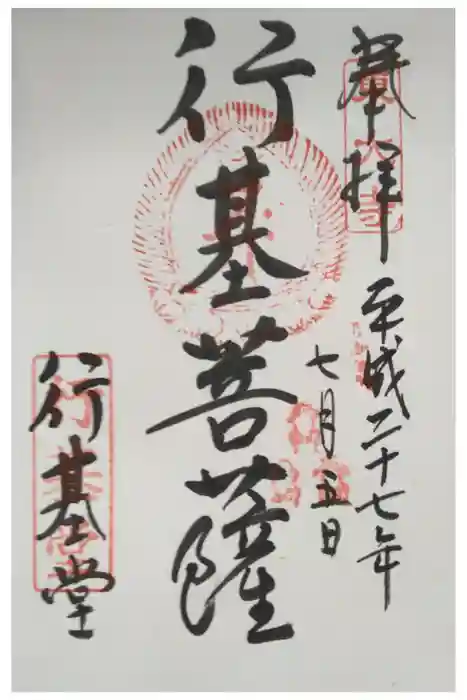 奉拝
東大寺
平成二十七年
七月五日
行基菩薩
行基堂